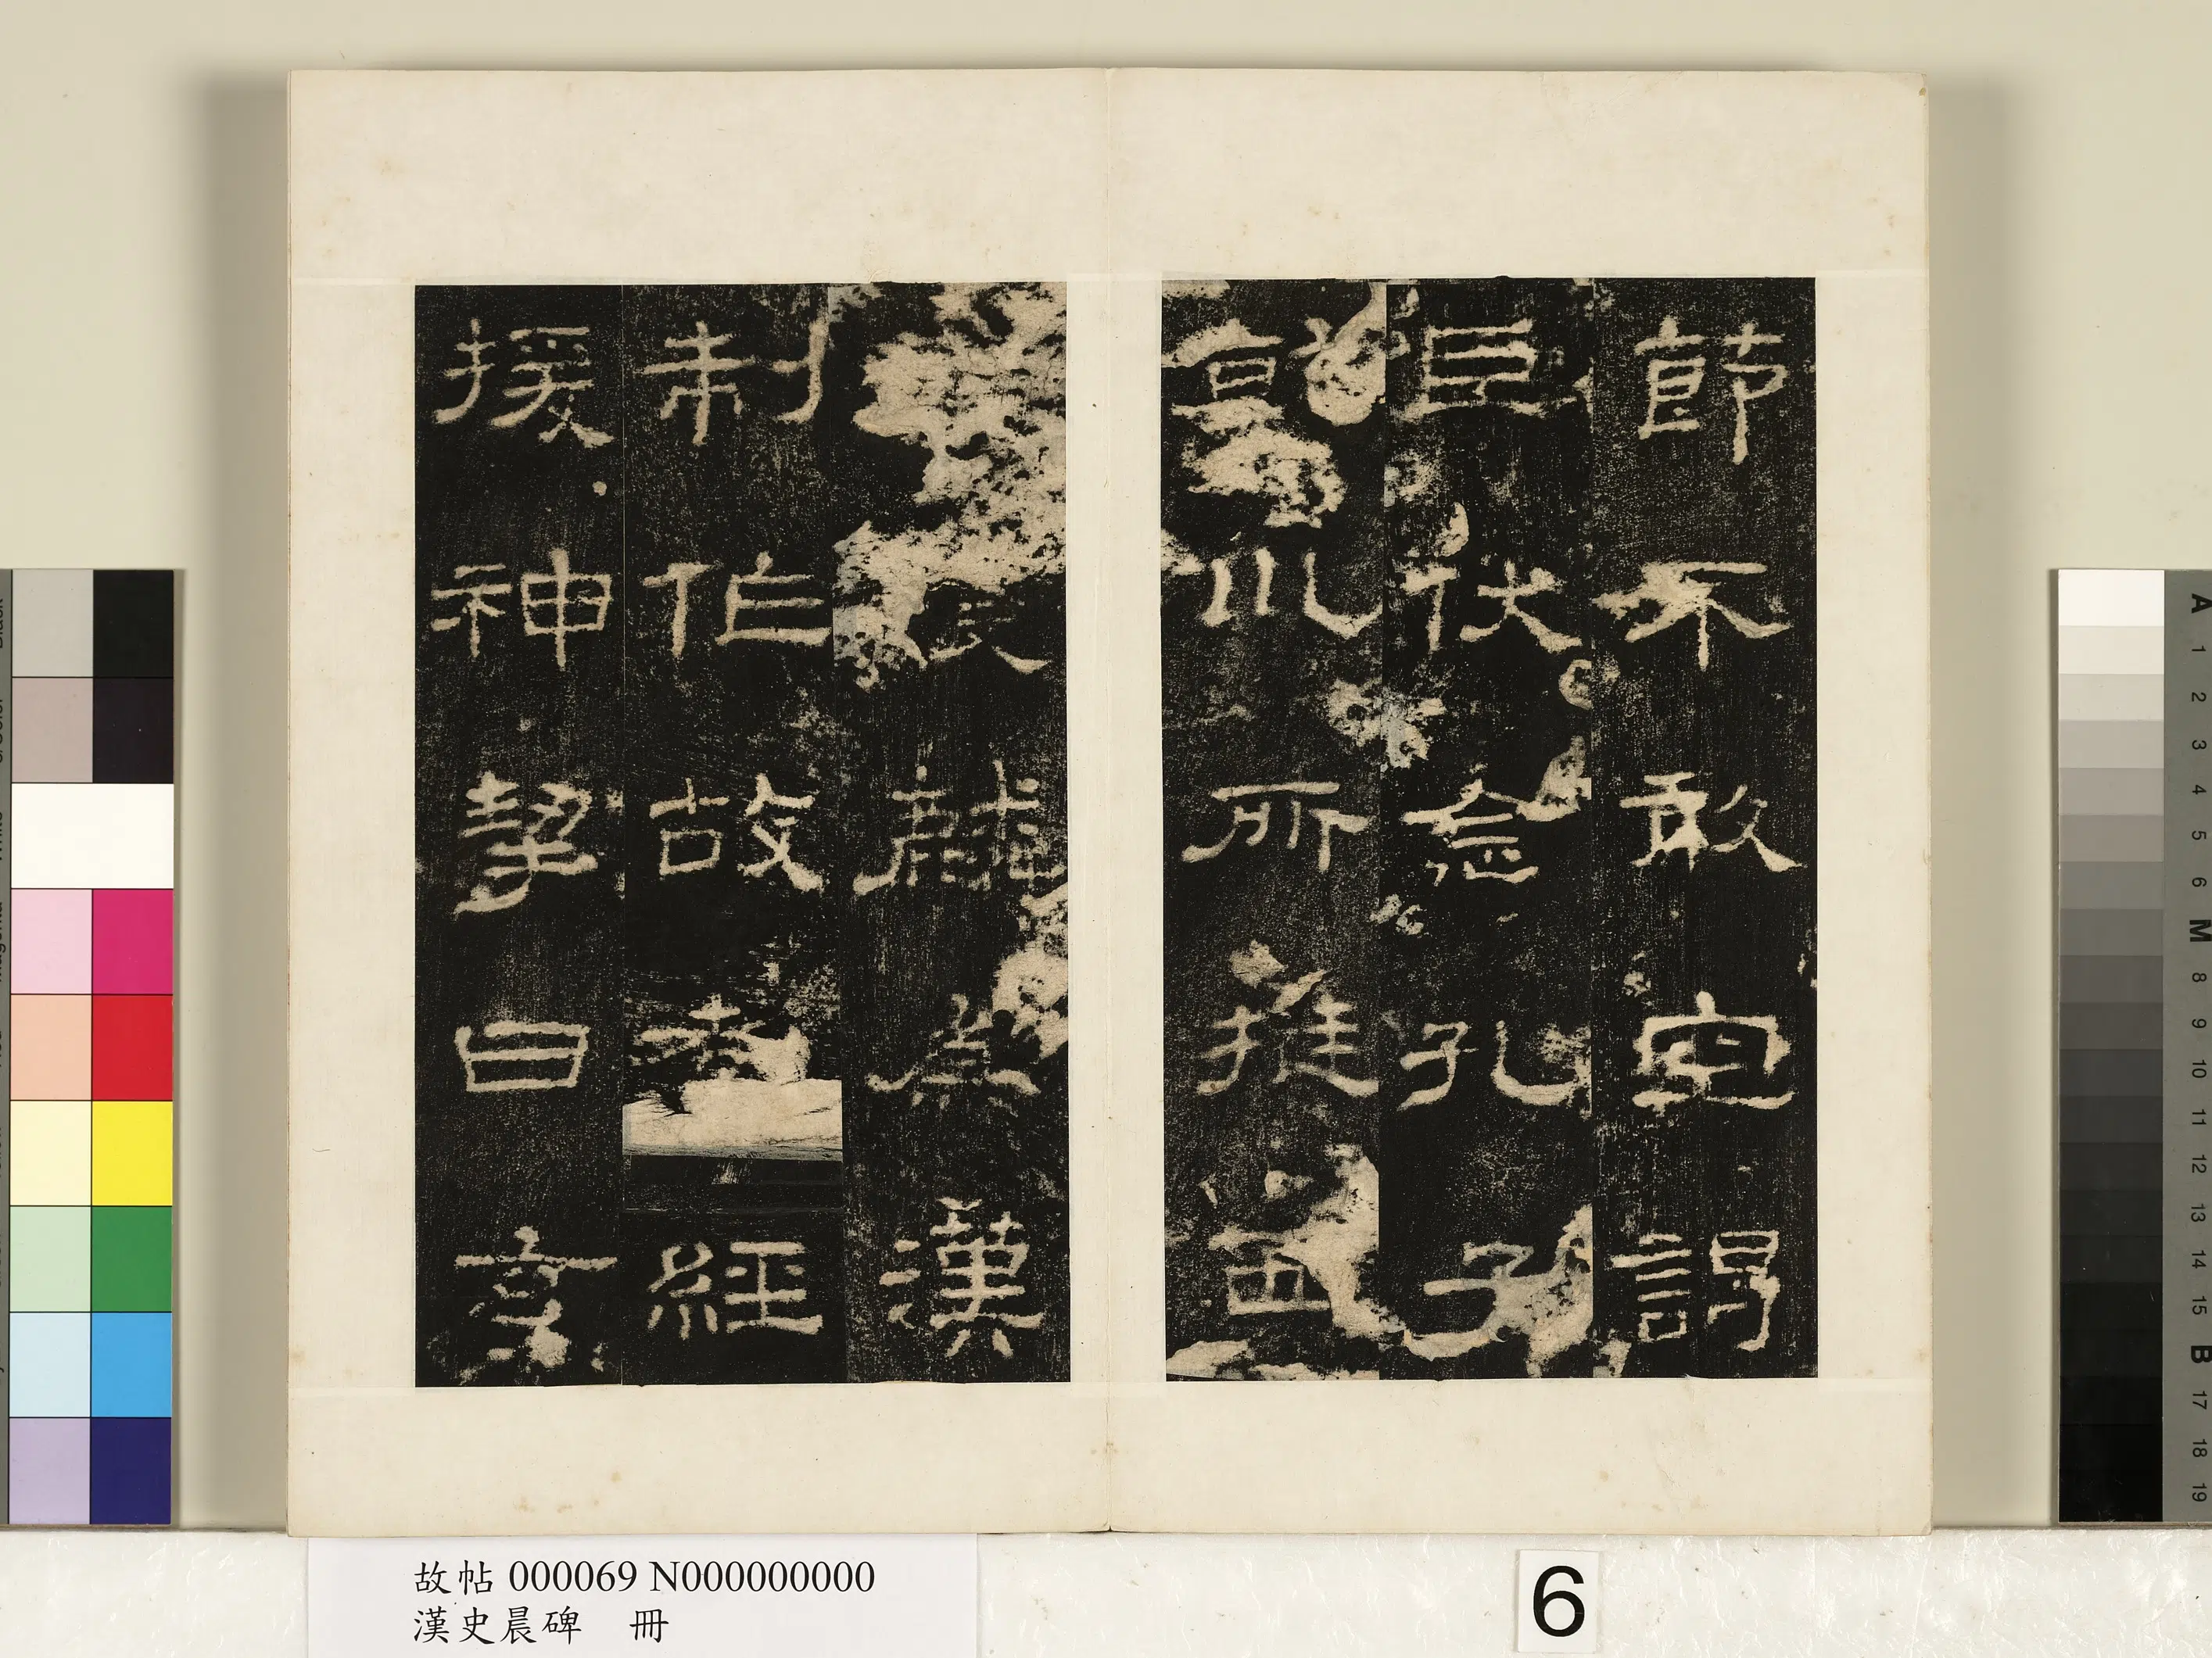 節不敢空謁
臣伏念孔子
乾川所挺西
麟為漢
制作故孝經
援神挈曰玄
故帖 000069 N000000000
漢史晨碑 冊
6
A 1 2 3 4 5 6 M 8 9 10 11 12 13 14 15 B 17 18 19